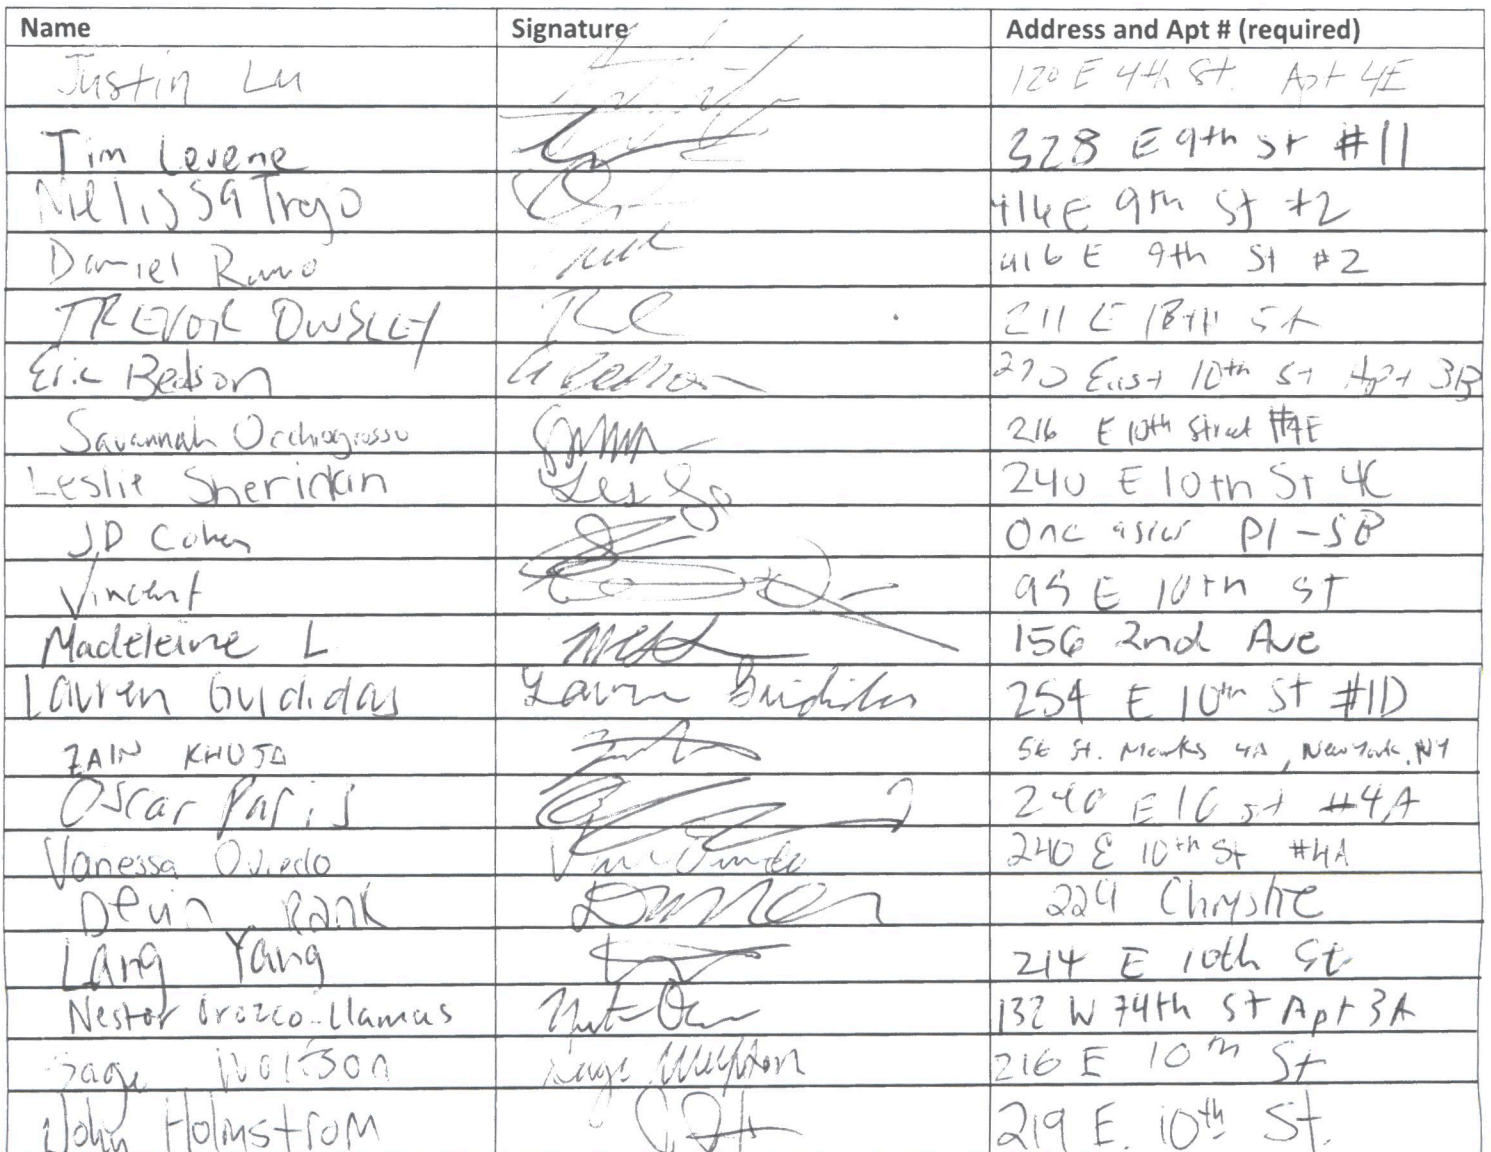 Name Signature Address and Apt # (required)
Justin Lu 120 E 4th St. Apt 4E
Tim Levene 328 E 9th St #11
Melissa Trejo 414 E 9th St #2
Daniel 416 E 9th St #2
TREVOR OWSLEY 211 E 13TH St
Eric Bedson E Bedson 270 East 10th St Apt 3B
Savannah Occhiogrosso 216 E 10th Street #4E
Leslie Sherinkin 240 E 10th St 4C
J.D Cohen One astor Pl - 5B
Vincent 95 E 10th St
Madeleine L 156 2nd Ave
Lauren Guididas Lauren Guididas 254 E 10th St #1D
ZAIN KHOJA St. Marks 4A, New York, NY
Oscar Paris 240 E 10 st #4A
Vanessa Oviedo 240 E 10th St #4A
Devin RANK 229 Chrystie
Lang Yang 214 E 10th St
Nestor Orozco-Llamas 132 W 74th St Apt 3A
Sage Sage 216 E 10th St
John Holmstrom 219 E. 10th St.